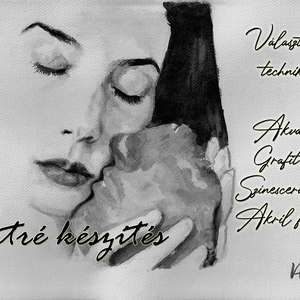 Választ
techni
Akva
Grafit
Színescer
Akril f
tré készítés